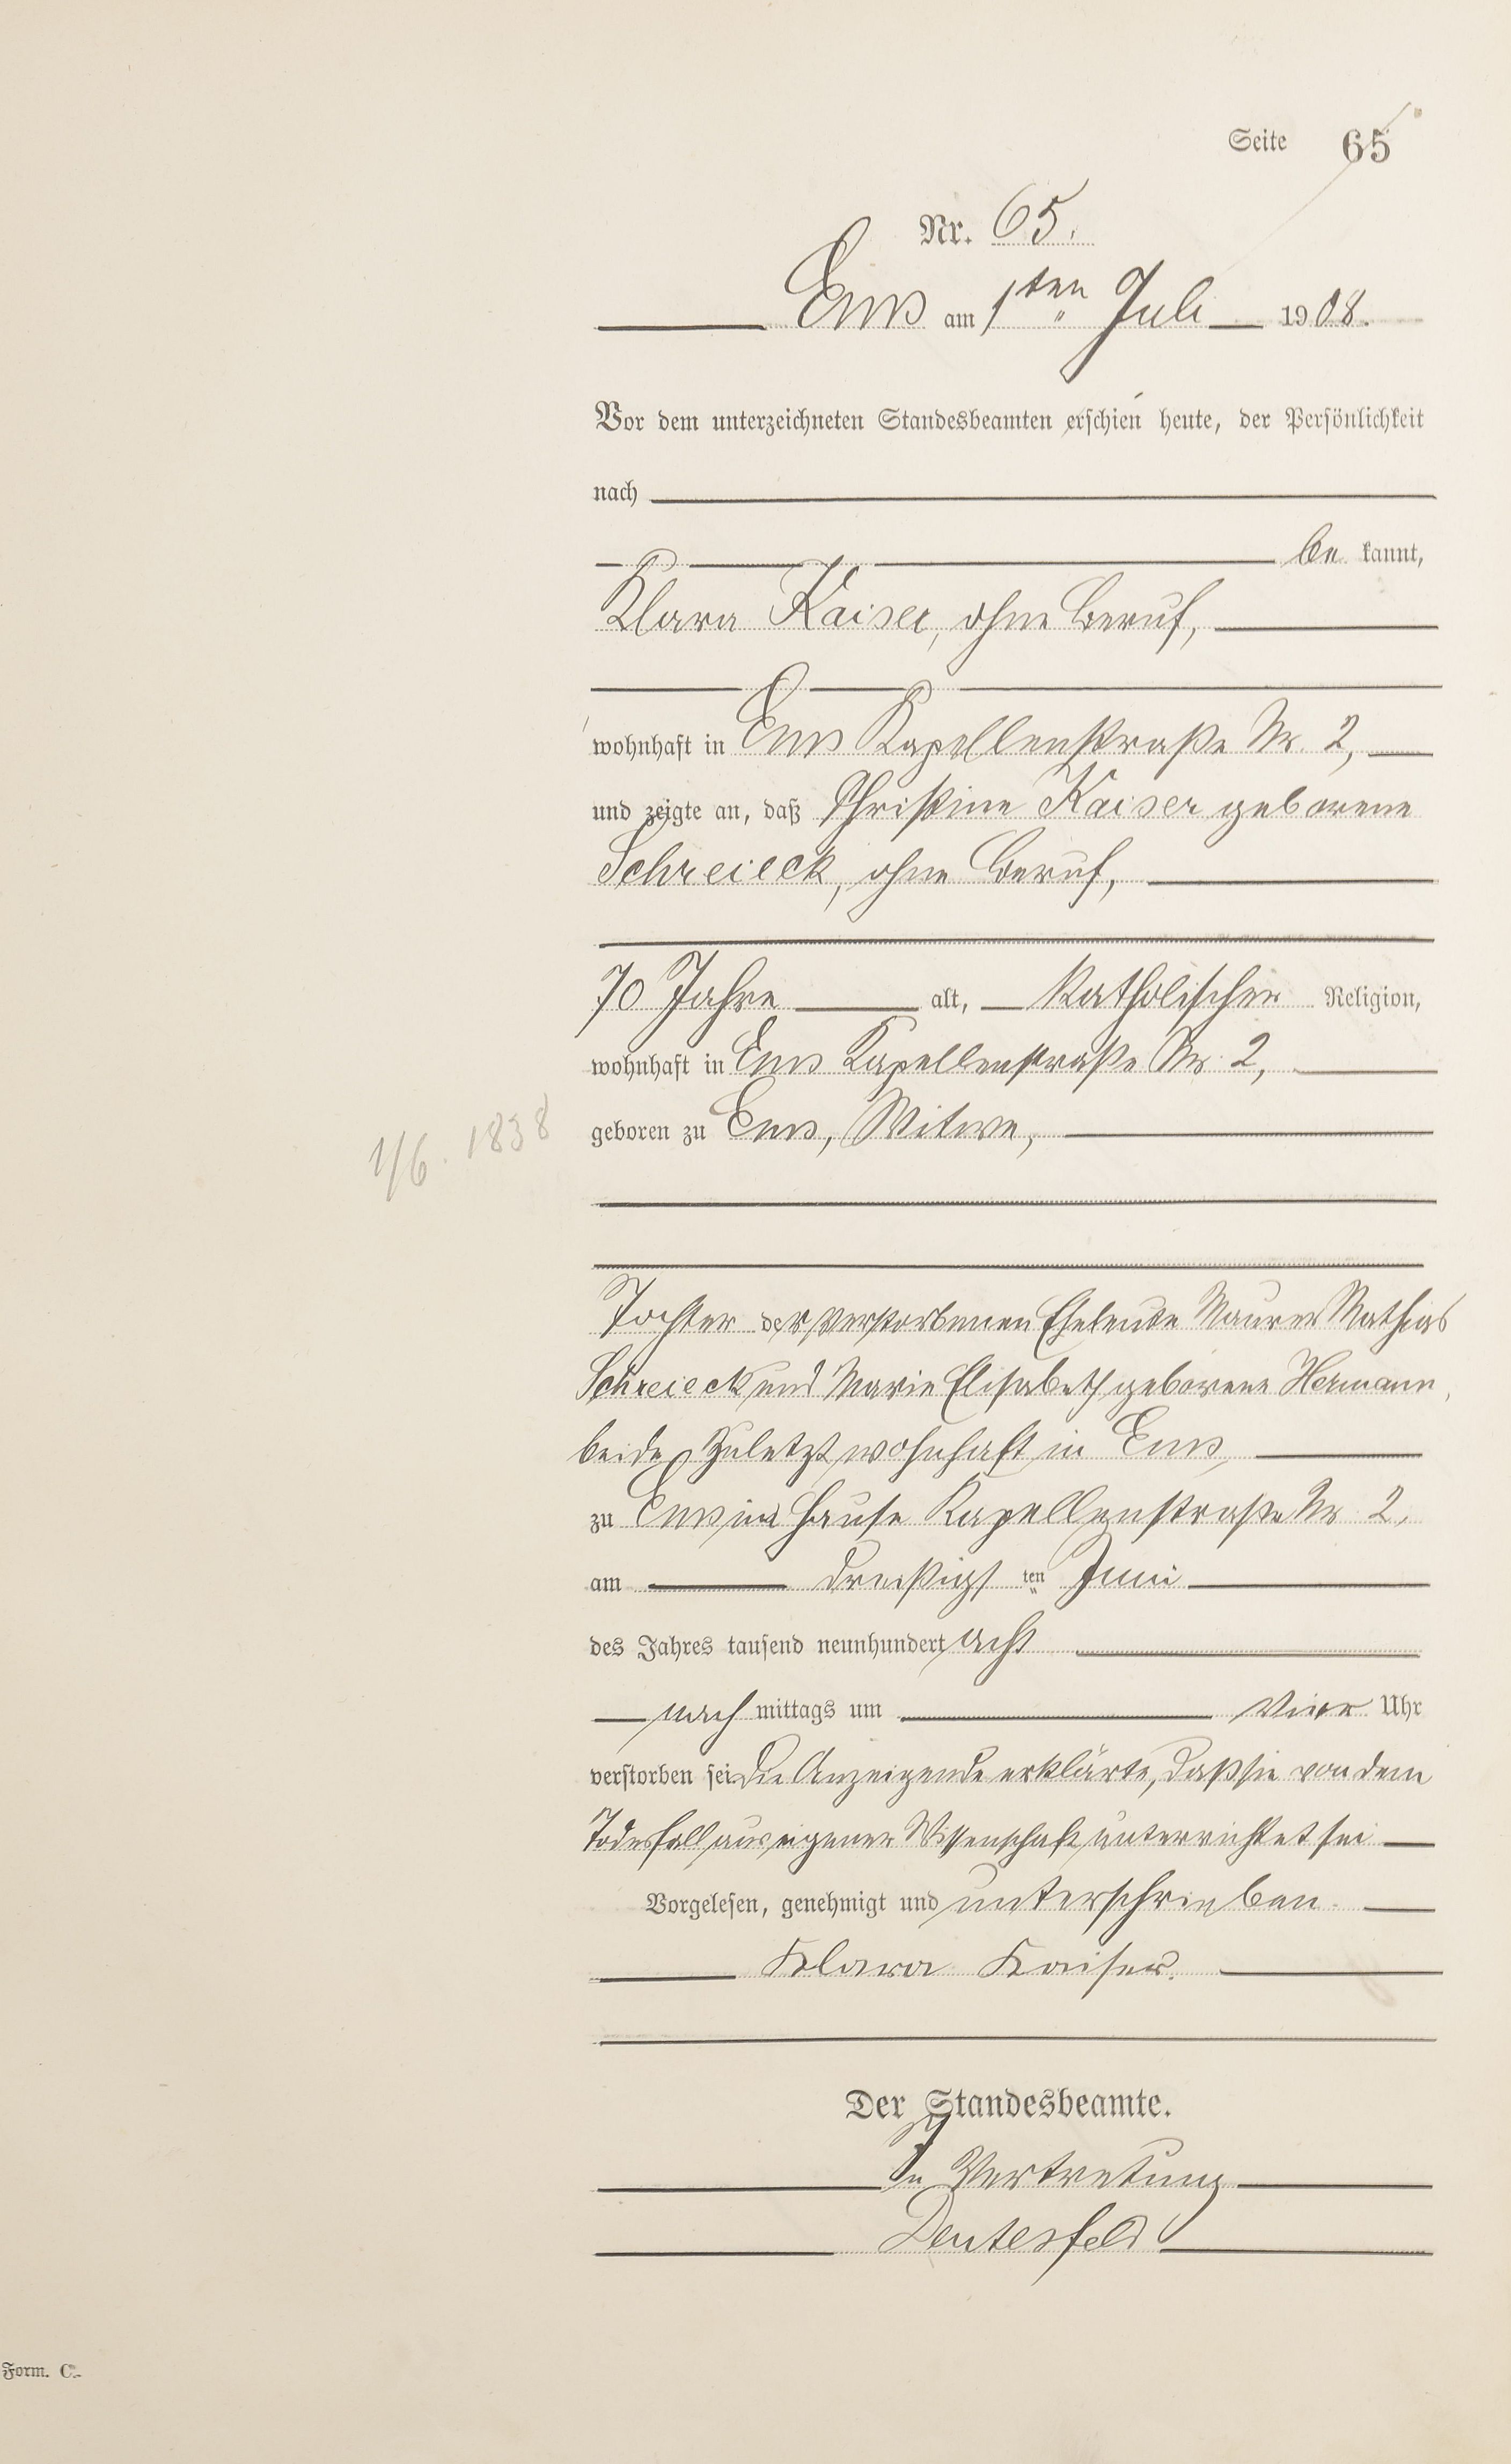 Seite 65
Nr. 65.
Ems am 1ten Juli 1908.
Vor dem unterzeichneten Standesbeamten erschien heute, der Persönlichkeit
nach
be kannt,
Klara Kaiser, ohne Beruf,
wohnhaft in Ems Kapellenstraße Nr. 2,
und zeigte an, daß Christine Kaiser geborene
Schreieck, ohne Beruf,
70 Jahre alt, katholischer Religion,
wohnhaft in Ems Kapellenstraße Nr. 2,
1/6. 1838
geboren zu Ems, Witwe,
Tochter der verstorbenen Eheleute Maurer Mathias
Schreieck und Marie Elisabeth geborene Hermann,
beide zuletzt wohnhaft in Ems,
zu Ems im Hause Kapellenstraße Nr. 2,
am dreißigsten Juni
des Jahres tausend neunhundert acht
nach mittags um vier Uhr
verstorben sei. Die Anzeigende erklärte, daß sie von dem
Todesfall aus eigener Wissenschaft unterrichtet sei
Vorgelesen, genehmigt und unterschrieben.
Klara Kaiser.
Der Standesbeamte.
In Vertretung
Deutesfeld
Form. C.